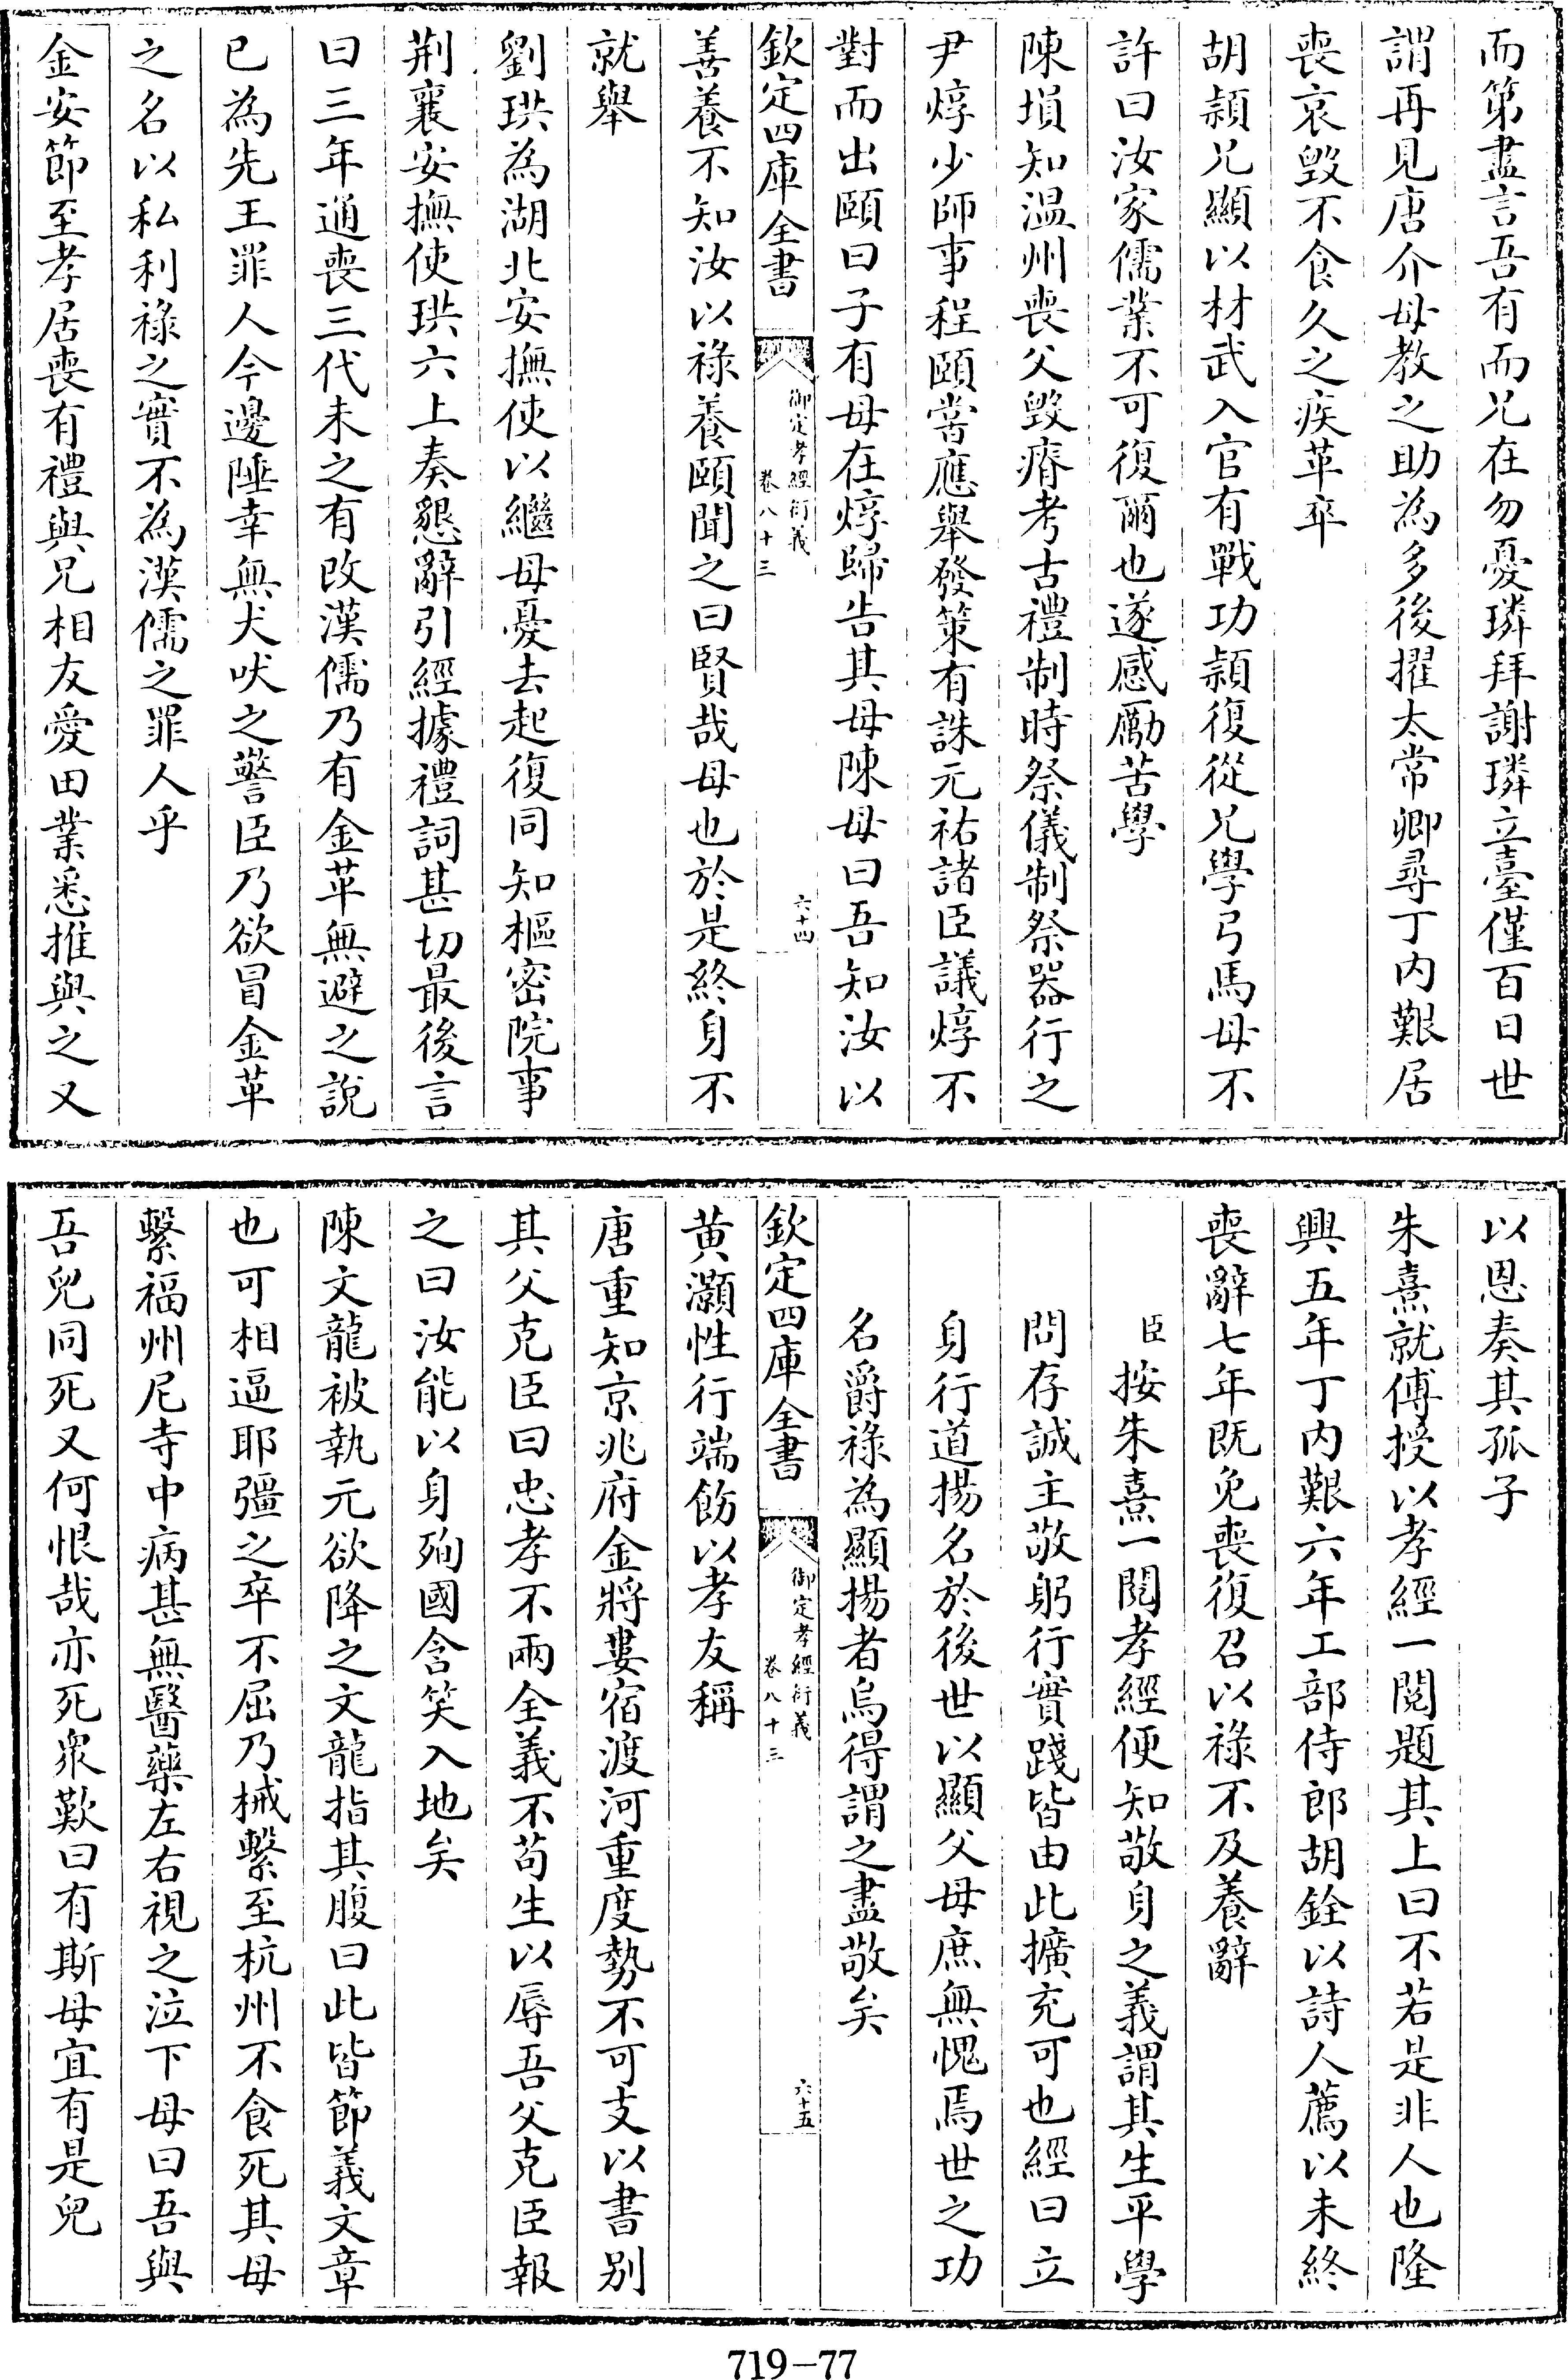 而第盡言吾有而兄在勿憂璘拜謝璘立臺僅百日世
謂再見唐介母教之助為多後擢太常卿尋丁内艱居
喪哀毁不食久之疾革卒
胡頴兄顯以材武入官有戰功頴復從兄學弓馬母不
許曰汝家儒業不可復爾也遂感勵苦學
陳塤知温州喪父毁瘠考古禮制時祭儀制祭器行之
尹焞少師事程頤嘗應舉發策有誅元祐諸臣議焞不
對而出頤曰子有母在焞歸告其母陳母曰吾知汝以
欽定四庫全書
御定孝經衍義
卷八十三
六十四
善養不知汝以祿養頤聞之曰賢哉母也於是終身不
就舉
劉珙為湖北安撫使以繼母憂去起復同知樞密院事
荆襄安撫使珙六上奏懇辭引經據禮詞甚切最後言
曰三年通喪三代未之有改漢儒乃有金革無避之說
已為先王罪人今邊陲幸無犬吠之警臣乃欲冒金革
之名以私利祿之實不為漢儒之罪人乎
金安節至孝居喪有禮與兄相友愛田業悉推與之又
以恩奏其孤子
朱熹就傅授以孝經一閲題其上曰不若是非人也隆
興五年丁内艱六年工部侍郎胡銓以詩人薦以未終
喪辭七年既免喪復召以祿不及養辭
臣按朱熹一閲孝經便知敬身之義謂其生平學
問存誠主敬躬行實踐皆由此擴充可也經曰立
身行道揚名於後世以顯父母庶無愧焉世之功
名爵祿為顯揚者烏得謂之盡敬矣
欽定四庫全書
御定孝經衍義
卷八十三
六十五
黄灝性行端飭以孝友稱
唐重知京兆府金將婁宿渡河重度勢不可支以書别
其父克臣曰忠孝不兩全義不苟生以辱吾父克臣報
之曰汝能以身殉國含笑入地矣
陳文龍被執元欲降之文龍指其腹曰此皆節義文章
也可相逼耶彊之卒不屈乃械繫至杭州不食死其母
繫福州尼寺中病甚無醫藥左右視之泣下母曰吾與
吾兒同死又何恨哉亦死衆歎曰有斯母宜有是兒
719-77